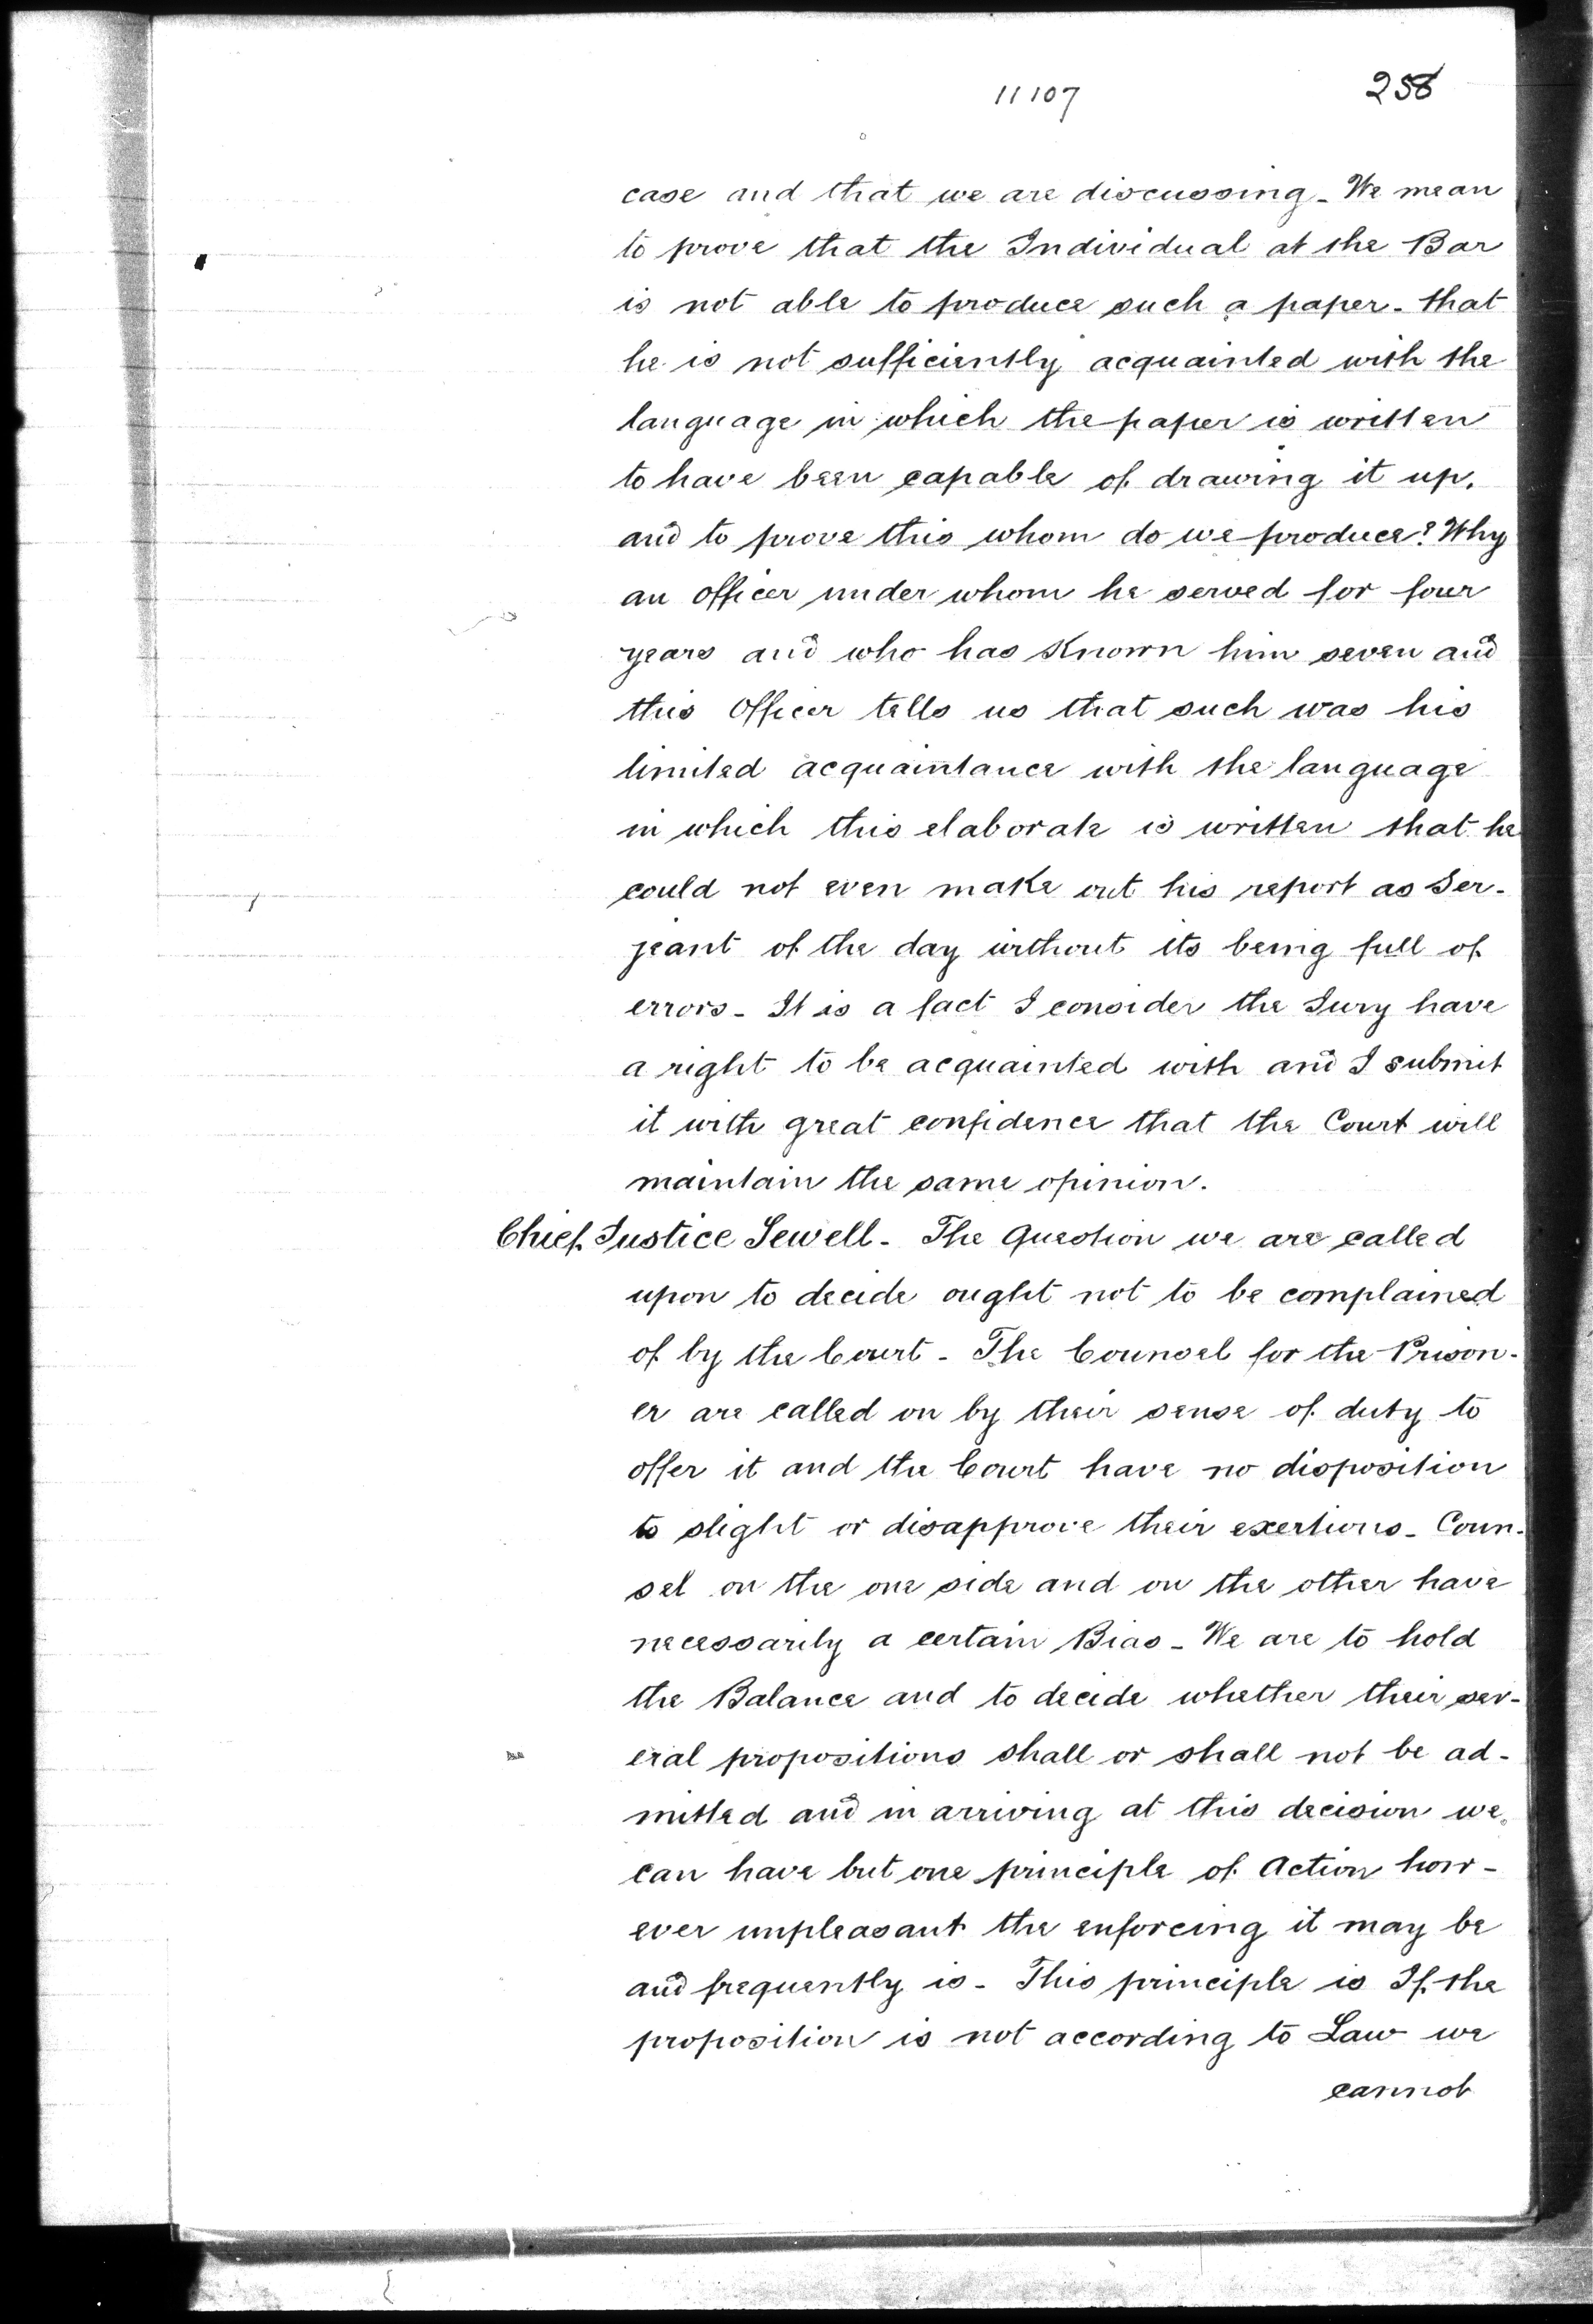 11107
258
case and that we are discussing - We mean
to prove that the Individual at the Bar
is not able to produce such a paper - that
he is not sufficiently acquainted with the
language in which the paper is written
to have been capable of drawing it up.
and to prove this whom do we produce? Why
an Officer under whom he served for four
years and who has Known him seven and
this Officer tells us that such was his
limited acquaintance with the language
in which this elaborate is written that he
could not even make out his report as Ser-
jeant of the day without its being full of
errors - It is a fact I consider the Jury have
a right to be acquainted with and I submit
it with great confidence that the Court will
maintain the same opinion.
Chief Justice Sewell - The Question we are called
upon to decide ought not to be complained
of by the Court - The Counsel for the Prison-
er are called on by their sense of duty to
offer it and the Court have no disposition
to slight or disapprove their exertions - Coun-
sel on the one side and on the other have
necessarily a certain Bias - We are to hold
the Balance and to decide whether their sev-
eral propositions shall or shall not be ad-
mitted and in arriving at this decision we
can have but one principle of Action how-
ever unpleasant the enforcing it may be
and frequently is - This principle is If the
proposition is not according to Law we
cannot